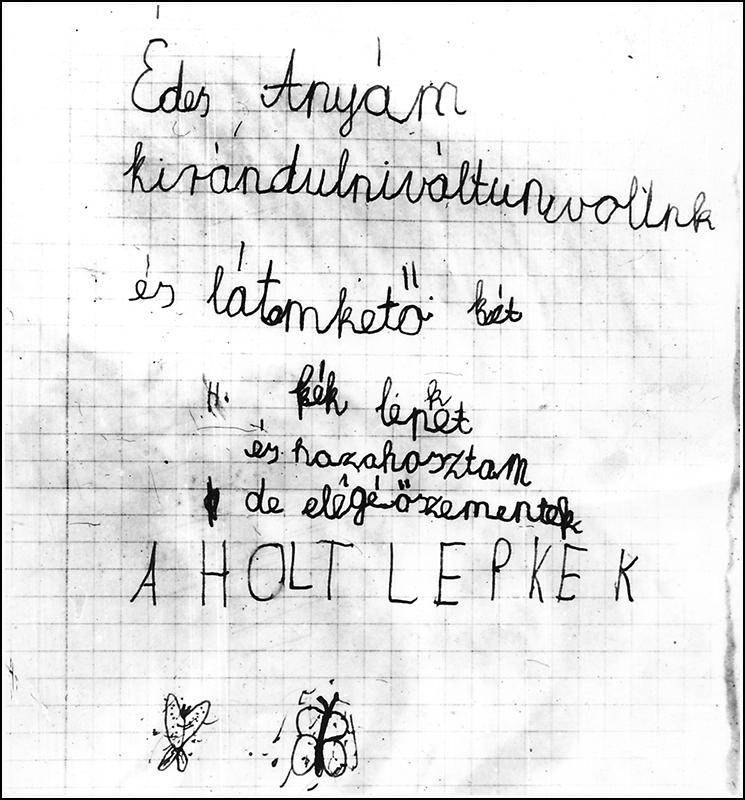 Édes Anyám
kirándulniváltunkvoltnk
és látomkető két
H. kék lepkét
és hazahosztam
de elégé őszementek
A HOLT LEPKEK